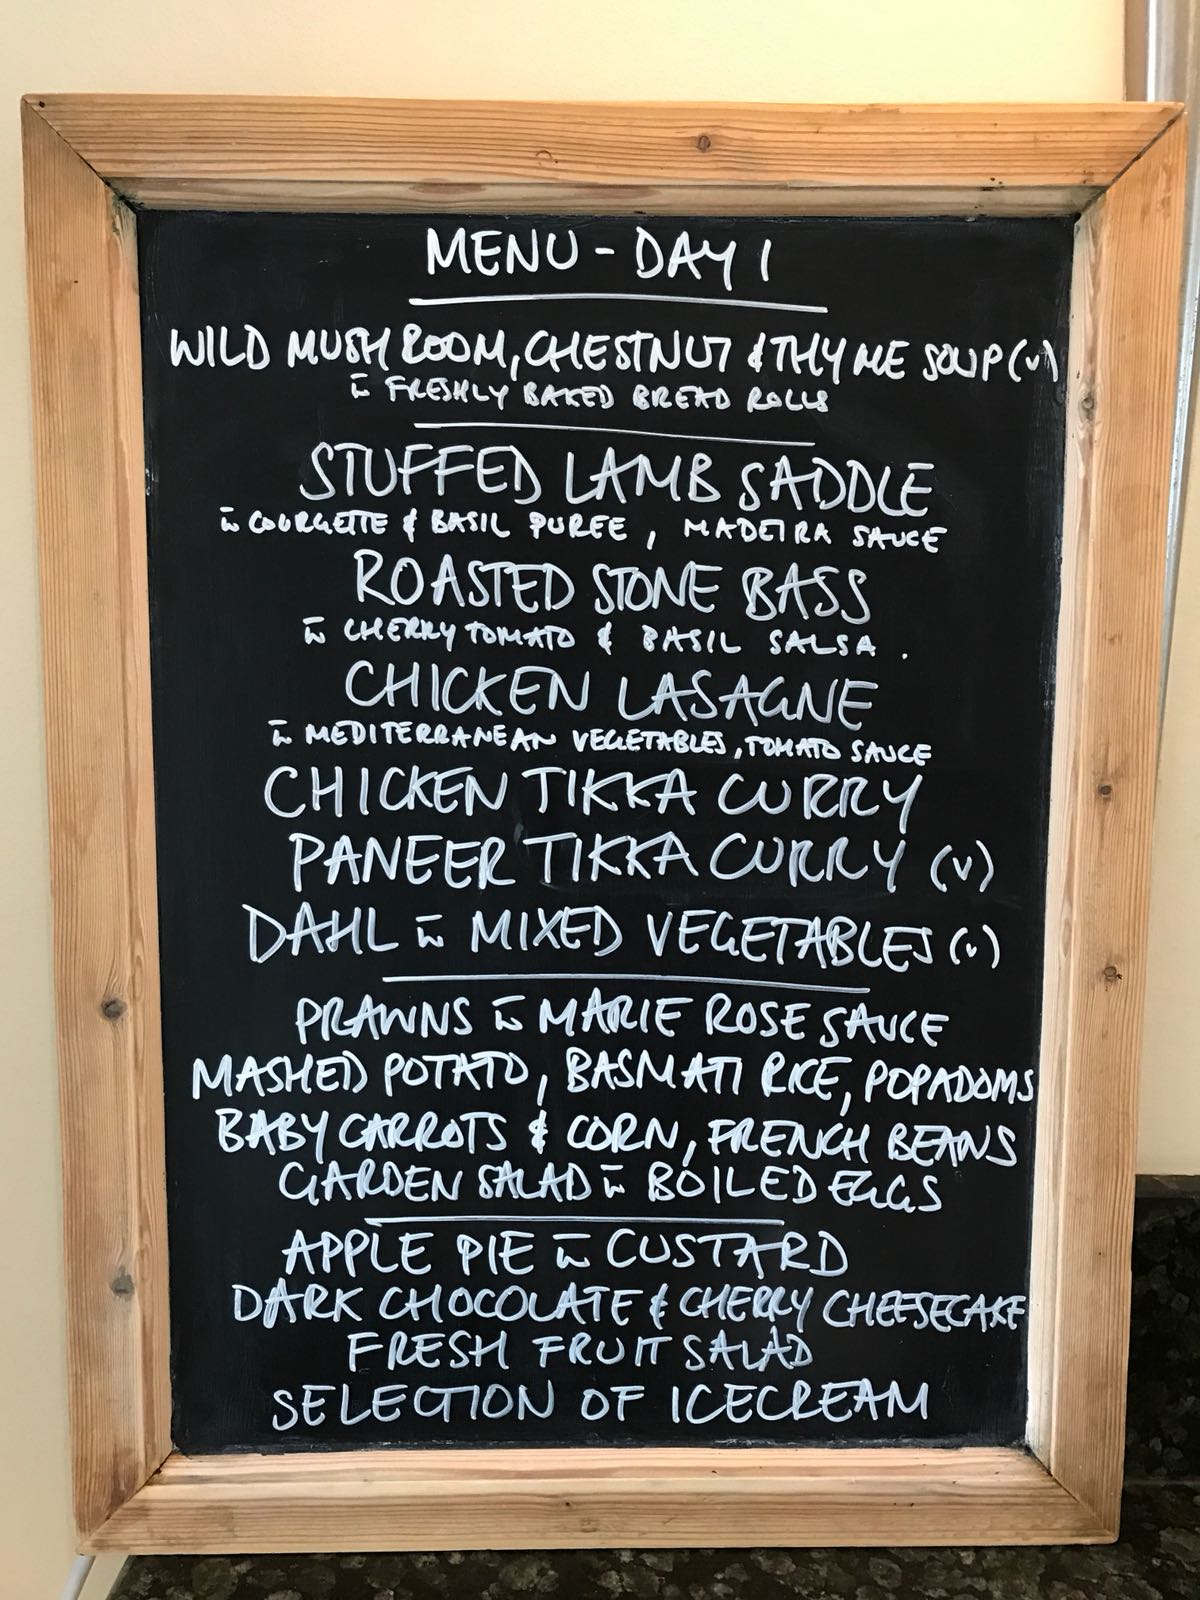 MENU - DAY 1
WILD MUSHROOM, CHESTNUT & THYME SOUP (V)
w̄ FRESHLY BAKED BREAD ROLLS
STUFFED LAMB SADDLE
w̄ COURGETTE & BASIL PUREE, MADEIRA SAUCE
ROASTED STONE BASS
w̄ CHERRY TOMATO & BASIL SALSA.
CHICKEN LASAGNE
w̄ MEDITERRANEAN VEGETABLES, TOMATO SAUCE
CHICKEN TIKKA CURRY
PANEER TIKKA CURRY (V)
DAHL w̄ MIXED VEGETABLES (V)
PRAWNS w̄ MARIE ROSE SAUCE
MASHED POTATO, BASMATI RICE, POPADOMS
BABY CARROTS & CORN, FRENCH BEANS
GARDEN SALAD w̄ BOILED EGGS
APPLE PIE w̄ CUSTARD
DARK CHOCOLATE & CHERRY CHEESECAKE
FRESH FRUIT SALAD
SELECTION OF ICECREAM